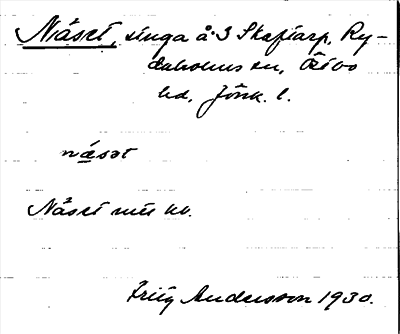 Näset, äng å 3 Skaftarp, Ry-
daholms sn, Östbo
hd, Jönk. l.
näsət
Näset mtr kv.
Fritz Andersson 1930.